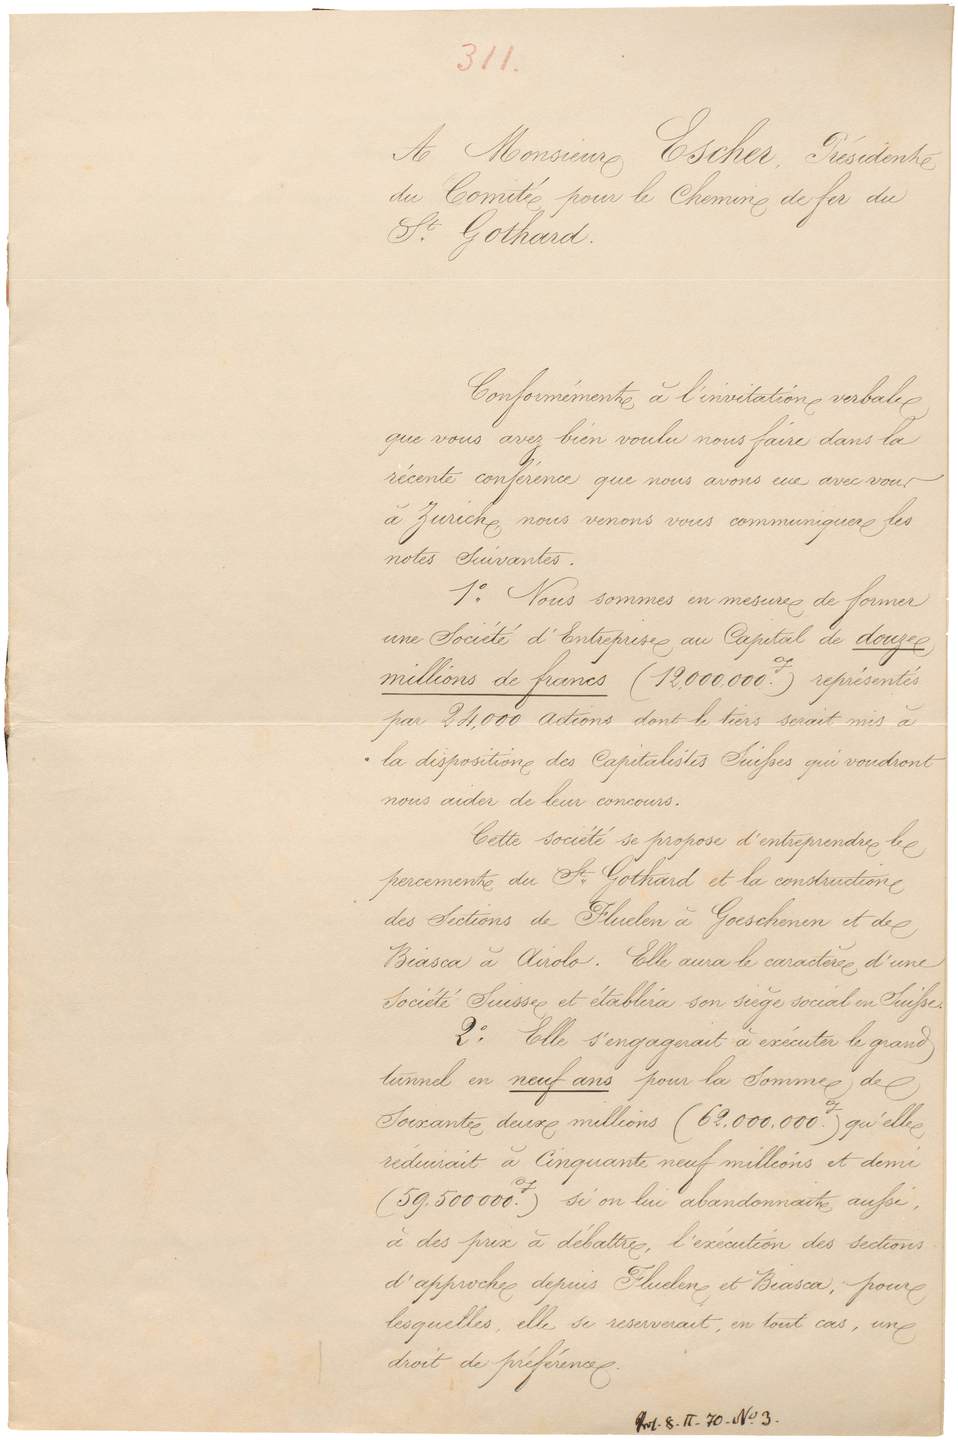 311.
A Monsieur Escher, Président
du Comité pour le Chemin de fer du
St. Gothard.
Conformément à l'invitation verbale
que vous avez bien voulu nous faire dans la
récente conférence que nous avons eue avec vous
à Zurich, nous venons vous communiquer les
notes suivantes.
1° Nous sommes en mesure de former
une Société d'Entreprise au Capital de douze
millions de francs (12,000,000 f.) représentés
par 24,000 actions dont le tiers serait mis à
la disposition des Capitalistes Suisses qui voudront
nous aider de leur concours.
Cette société se propose d'entreprendre le
percement du St. Gothard et la construction
des Sections de Fluelen à Goeschenen et de
Biasca à Airolo. Elle aura le caractère d'une
Société Suisse et établira son siège social en Suisse.
2° Elle s'engagerait à exécuter le grand
tunnel en neuf ans pour la Somme de
Soixante deux millions (62.000.000 f.) qu'elle
réduirait à Cinquante neuf millions et demi
(59.500000 f.) si on lui abandonnait aussi,
à des prix à débattre, l'exécution des sections
d'approche depuis Fluelen et Biasca, pour
lesquelles, elle se reserverait, en tout cas, un
droit de préférence.
Prot. 8. II. 70. No 3.